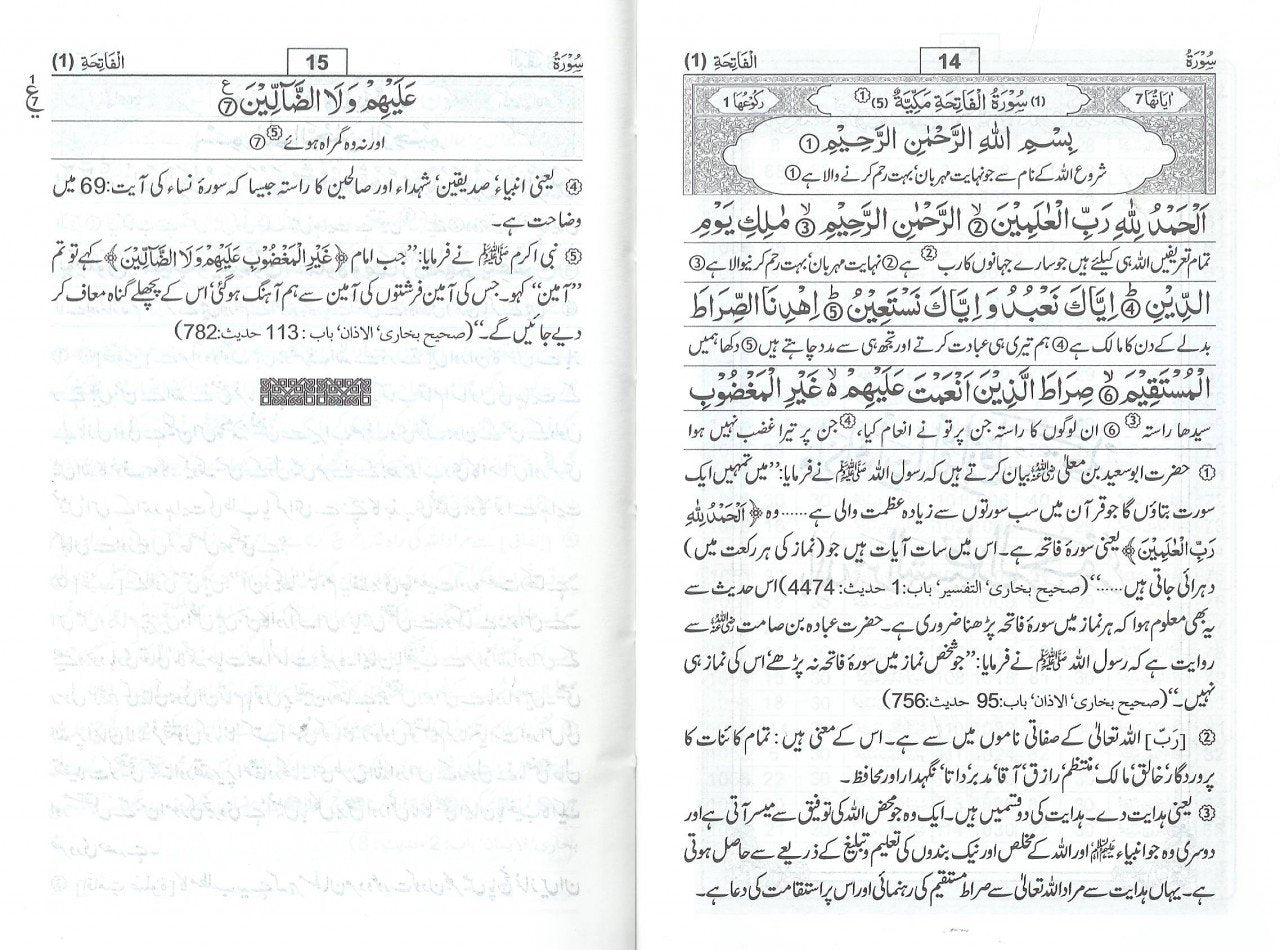 سُوْرَةُ 14 اَلْفَاتِحَةِ (1)
اٰيَاتُهَا 7 (1) سُوْرَةُ الْفَاتِحَةِ مَكِّيَّةٌ (5) ① رُكُوْعُهَا 1
بِسْمِ اللّٰهِ الرَّحْمٰنِ الرَّحِيْمِ ①
شروع اللہ کے نام سے جو نہایت مہربان' بہت رحم کرنے والا ہے ①
اَلْحَمْدُ لِلّٰهِ رَبِّ الْعٰلَمِيْنَ ② الرَّحْمٰنِ الرَّحِيْمِ ③ مٰلِكِ يَوْمِ
تمام تعریفیں اللہ ہی کیلئے ہیں جو سارے جہانوں کا رب ② ہے ② نہایت مہربان' بہت رحم کرنیوالا ہے ③
الدِّيْنِ ④ اِيَّاكَ نَعْبُدُ وَ اِيَّاكَ نَسْتَعِيْنُ ⑤ اِهْدِنَا الصِّرَاطَ
بدلے کے دن کا مالک ہے ④ ہم تیری ہی عبادت کرتے اور تجھ ہی سے مدد چاہتے ہیں ⑤ دکھا ہمیں
الْمُسْتَقِيْمَ ⑥ صِرَاطَ الَّذِيْنَ اَنْعَمْتَ عَلَيْهِمْ غَيْرِ الْمَغْضُوْبِ
سیدھا راستہ ③ ⑥ ان لوگوں کا راستہ جن پر تو نے انعام کیا، ④ جن پر تیرا غضب نہیں ہوا
① حضرت ابوسعید بن معلیٰ رضی اللہ عنہ بیان کرتے ہیں کہ رسول اللہ ﷺ نے فرمایا: ''میں تمہیں ایک
سورت بتاؤں گا جو قرآن میں سب سورتوں سے زیادہ عظمت والی ہے...... وہ ﴿اَلْحَمْدُ لِلّٰهِ
رَبِّ الْعٰلَمِيْنَ﴾ یعنی سورۂ فاتحہ ہے۔ اس میں سات آیات ہیں جو (نماز کی ہر رکعت میں)
دہرائی جاتی ہیں......'' (صحیح بخاری' التفسیر' باب: 1 حدیث: 4474) اس حدیث سے
یہ بھی معلوم ہوا کہ ہر نماز میں سورۂ فاتحہ پڑھنا ضروری ہے۔ حضرت عبادہ بن صامت رضی اللہ عنہ سے
روایت ہے کہ رسول اللہ ﷺ نے فرمایا: ''جو شخص نماز میں سورۂ فاتحہ نہ پڑھے' اس کی نماز ہی
نہیں۔'' (صحیح بخاری' الاذان' باب: 95 حدیث: 756)
② [رَبّ] اللہ تعالیٰ کے صفاتی ناموں میں سے ہے۔ اس کے معنی ہیں: تمام کائنات کا
پروردگار' خالق' مالک' منتظم' رازق' آقا' مدبر' داتا' نگہدار اور محافظ۔
③ یعنی ہدایت دے۔ ہدایت کی دو قسمیں ہیں۔ ایک وہ جو محض اللہ کی توفیق سے میسر آتی ہے اور
دوسری وہ جو انبیاء علیہم السلام اور اللہ کے مخلص اور نیک بندوں کی تعلیم و تبلیغ کے ذریعے سے حاصل ہوتی
ہے۔ یہاں ہدایت سے مراد اللہ تعالیٰ سے صراط مستقیم کی رہنمائی اور اس پر استقامت کی دعا ہے۔
سُوْرَةُ 15 اَلْفَاتِحَةِ (1)
عَلَيْهِمْ وَلَا الضَّآلِّيْنَ ⑦
اور نہ وہ گمراہ ہوئے ⑤ ⑦
1
ع
7
④ یعنی انبیاء' صدیقین' شہداء اور صالحین کا راستہ جیسا کہ سورۂ نساء کی آیت: 69 میں
وضاحت ہے۔
⑤ نبی اکرم ﷺ نے فرمایا: ''جب امام ﴿غَيْرِ الْمَغْضُوْبِ عَلَيْهِمْ وَلَا الضَّآلِّيْنَ﴾ کہے تو تم
''آمین'' کہو۔ جس کی آمین فرشتوں کی آمین سے ہم آہنگ ہوگئی' اس کے پچھلے گناہ معاف کر
دیے جائیں گے۔'' (صحیح بخاری' الاذان' باب: 113 حدیث: 782)